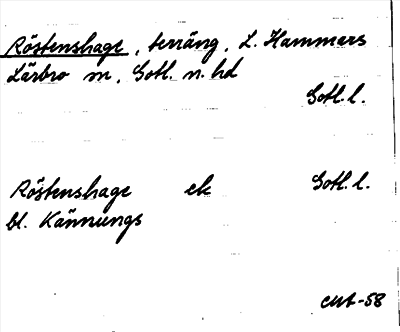 Röstenshage, terräng, L. Hammars
Lärbro sn, Gotl. n. hd
Gotl. l.
Röstenshage ek Gotl. l.
bl. Kännungs